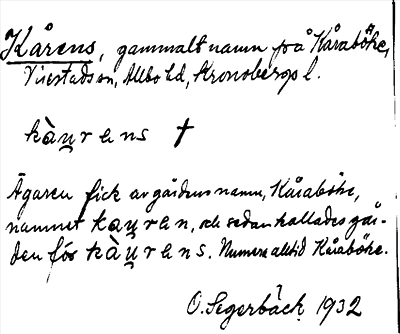 Kårens, gammalt namn på Kåraböke,
Virestads sn, Allbo hd, Kronobergs l.
kàu̯rens †
Ägaren fick av gårdens namn, Kåraböke,
namnet kau̯ren, och sedan kallades går-
den för kàu̯rens. Numera alltid Kåraböke.
O. Segerbäck 1932